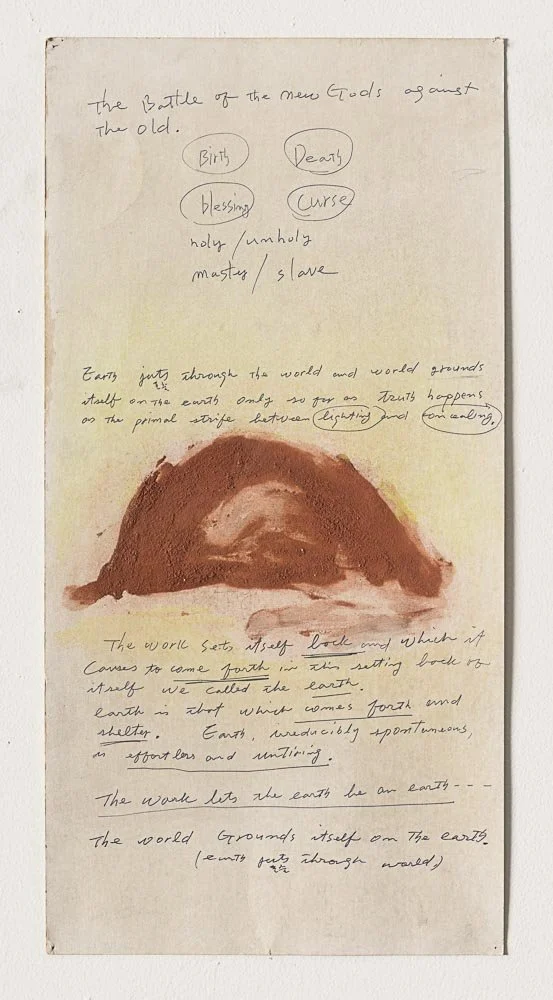 The Battle of the new Gods against
The old.
Birth Death
blessing curse
holy / unholy
master / slave
Earth juts through the world and world grounds
itself on the earth only so far as truth happens
as the primal strife between lighting and concealing.
The work sets itself back and which it
Causes to come forth in this setting back of
itself we called the earth.
Earth is that which comes forth and
shelter. Earth, irreducibly spontaneous,
is effortless and untiring.
The work lets the earth be an earth - - -
The world Grounds itself on The earth.
(earth juts through world,)